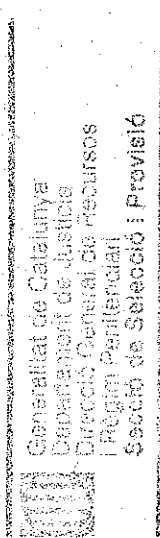 Generalitat de Catalunya
Departament de Justícia
Direcció General de Recursos
i Règim Penitenciari
Secció de Selecció i Previsió